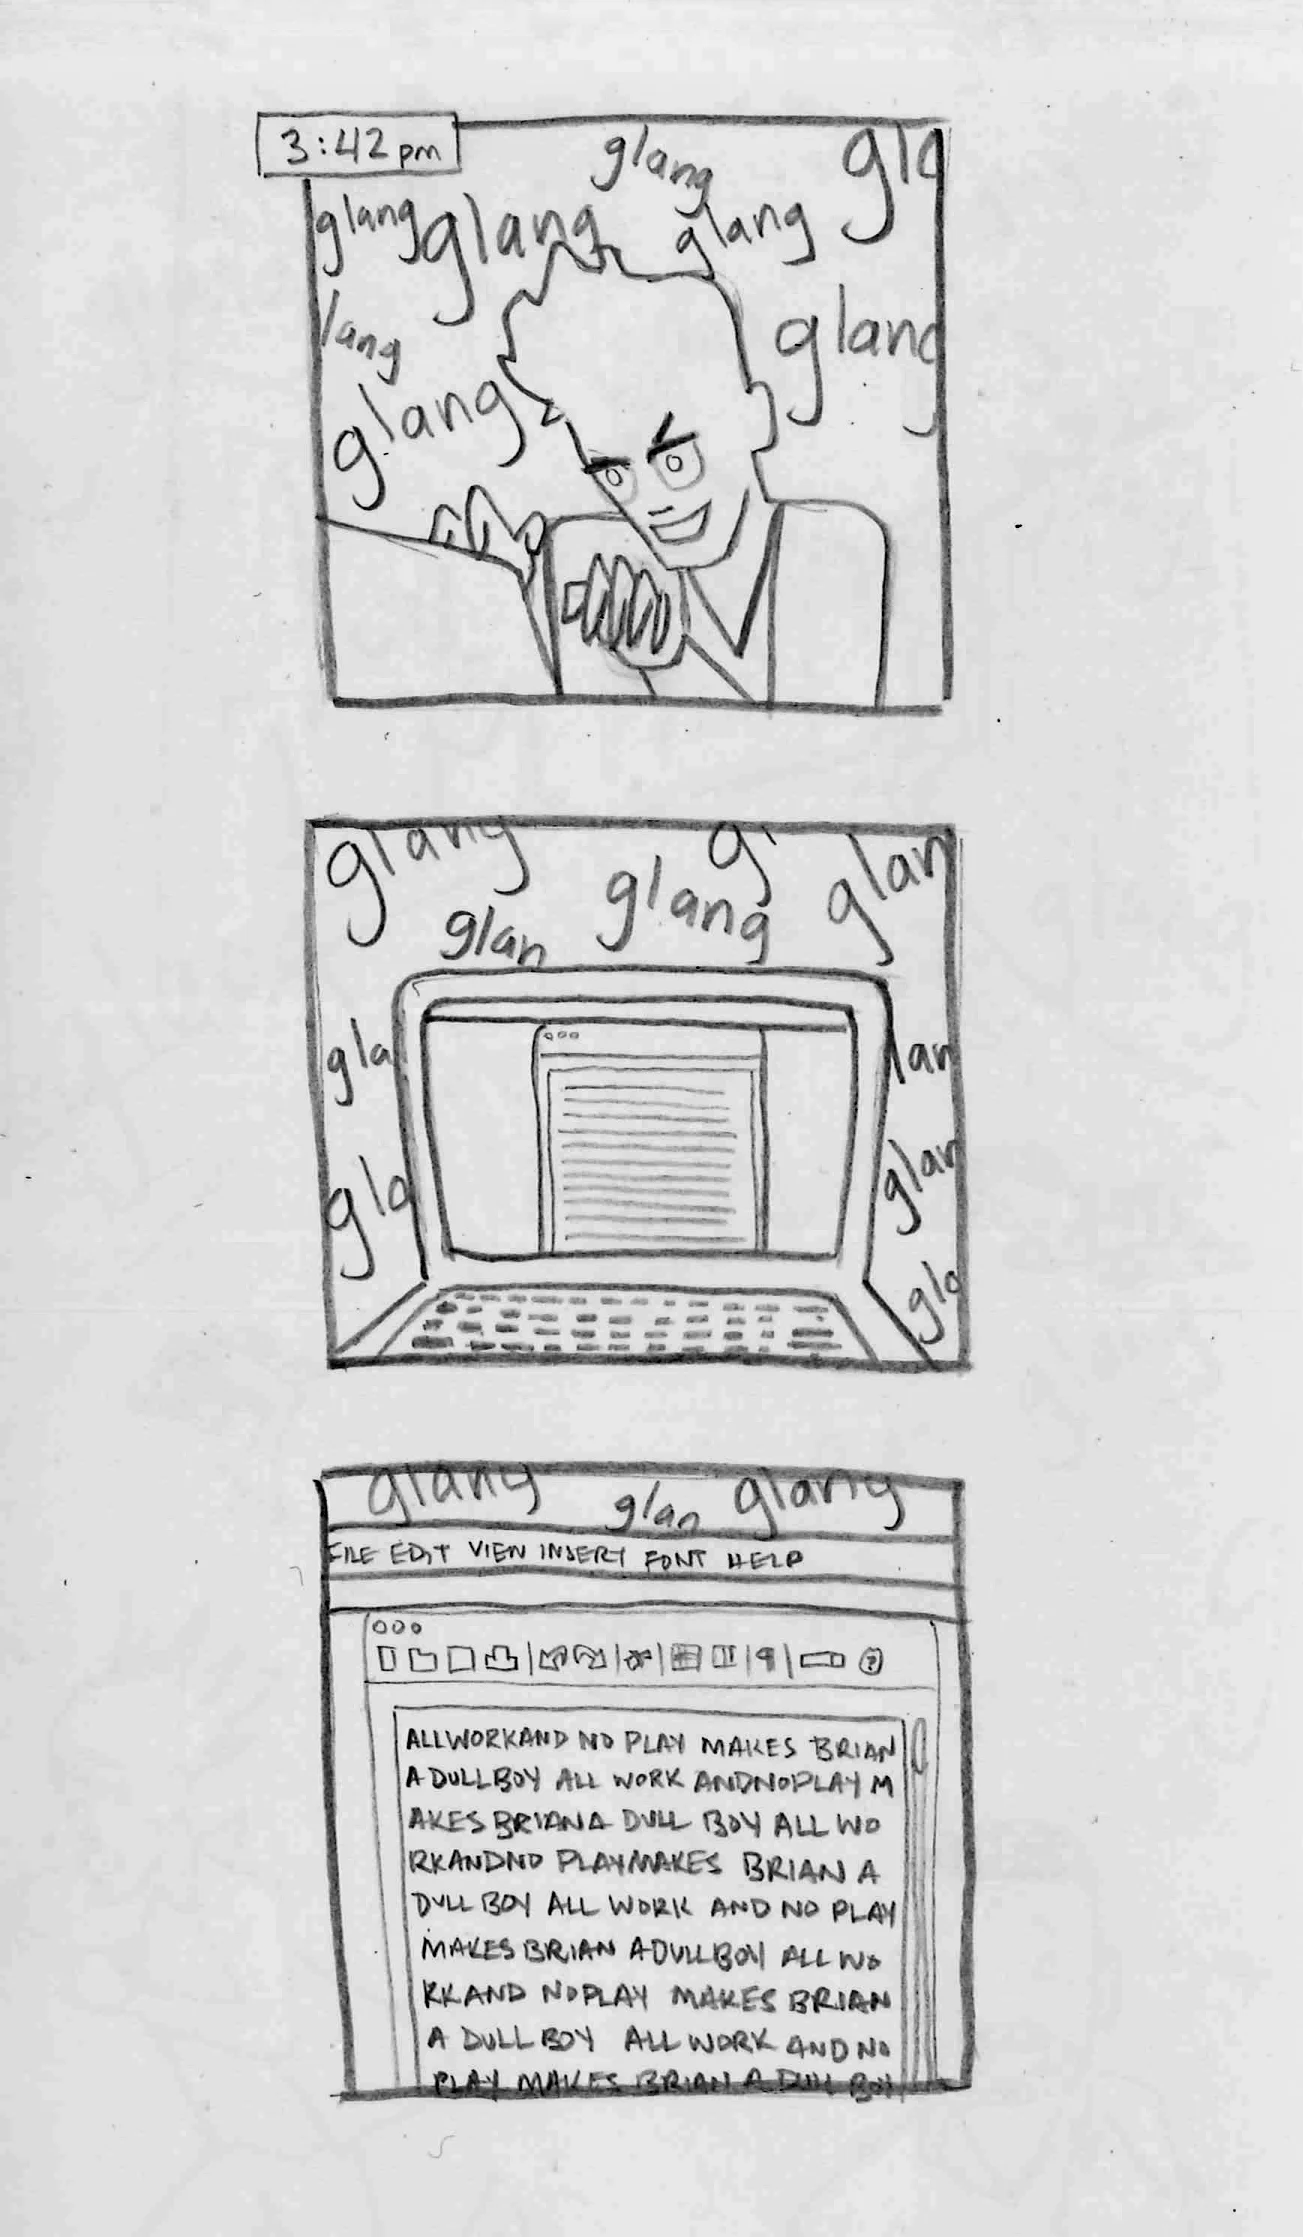 3:42pm
glang
gla
glang
glang
glang
lang
glang
glang
glang
gl
glan
glang
glan
gla
lan
gla
glan
gla
glang
glan
glang
FILE EDIT VIEW INSERT FONT HELP
?
ALLWORKAND NO PLAY MAKES BRIAN
A DULLBOY ALL WORK ANDNOPLAY M
AKES BRIANA DULL BOY ALL WO
RKANDNO PLAYMAKES BRIAN A
DULL BOY ALL WORK AND NO PLAY
MAKES BRIAN ADULLBOY ALL WO
RKAND NOPLAY MAKES BRIAN
A DULL BOY ALL WORK AND NO
PLAY MAKES BRIAN A DULL BOY